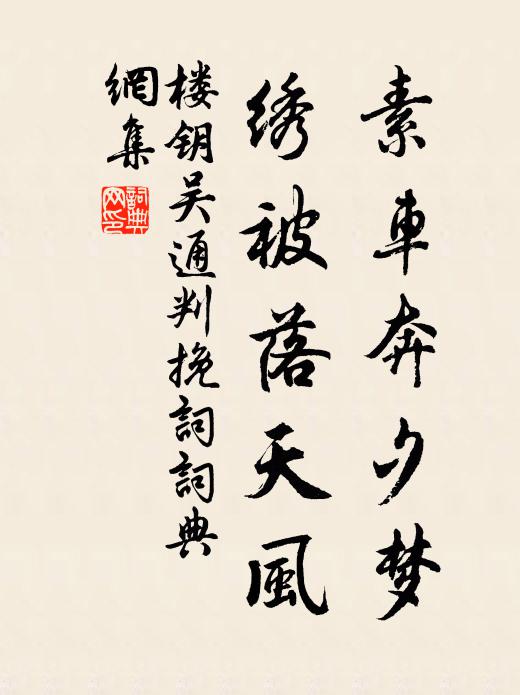 素車奔夕梦
绣被落天風
楼钥吴通判挽詞詞典
網集
詞典
网印